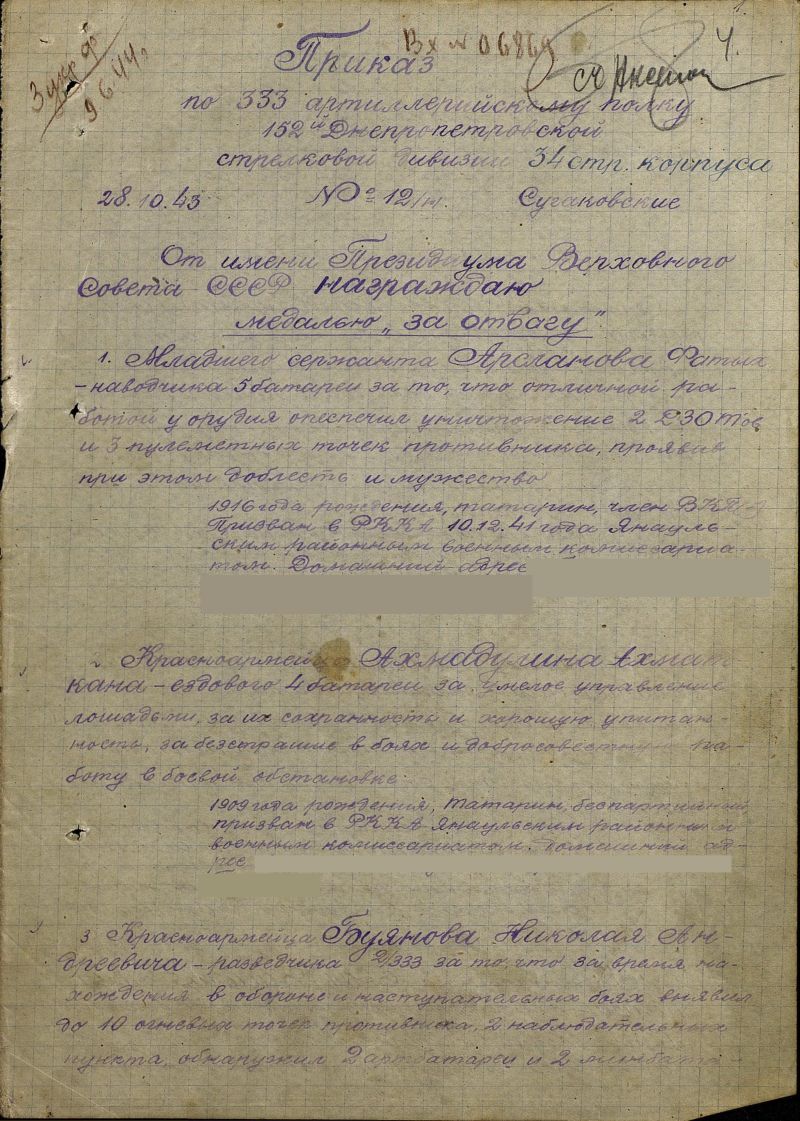 Вх № 06869
3 укр ф
9 6 44 г.
4.
Приказ
по 333 артиллерийскому полку
152ой Днепропетровской
стрелковой дивизии 34 стр. корпуса
28.10.43 № 12/н. Сугаковские
От имени Президиума Верховного
Совета СССР награждаю
медалью „за отвагу"
1. Младшего сержанта Арсланова Фатых
- наводчика 5 батареи за то, что отличной ра-
ботой у орудия опеспечил уничтожение 2 ДЗОТов
и 3 пулеметных точек противника, проявив
при этом доблесть и мужество
1916 года рождения, татарин, член ВКП/б
Призван в РККА 10.12.41 года Янауль-
ским районным военным комиссариа-
том. Домашний адрес
2 Красноармейца Ахмадулина Ахмат
хана - ездового 4 батареи за умелое управление
лошадьми, за их сохранность и хорошую упитан-
ность, за безстрашие в боях и добросовестную ра-
боту в боевой обстановке:
1909 года рождения, татарин, беспартийный
призван в РККА Янаульским районным
военным комиссариатом. Домашний ад-
рес
3 Красноармейца Буянова Николая Ан-
дреевича - разведчика 2/333 за то, что за время на-
хождения в обороне и наступательных боях выявил
до 10 огневых точек противника, 2 наблюдательных
пункта, обнаружил 2 артбатареи и 2 минбата-